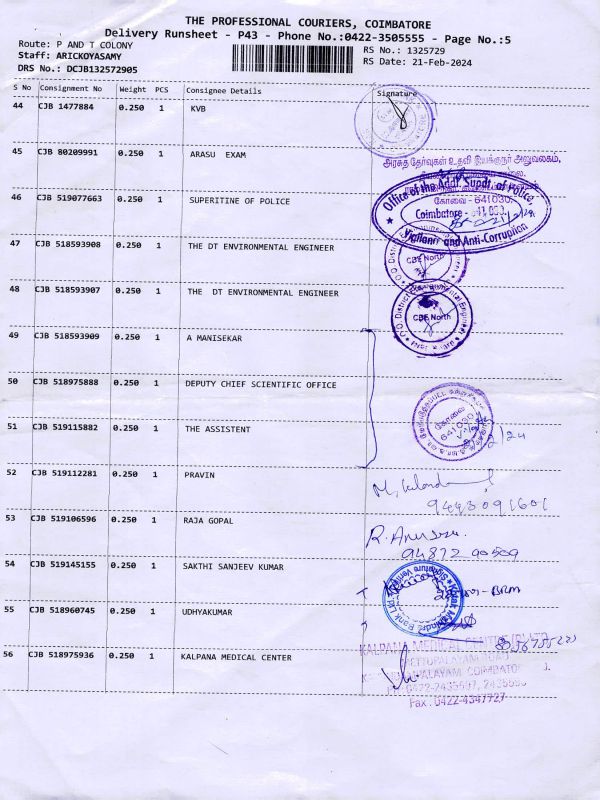 THE PROFESSIONAL COURIERS, COIMBATORE
Delivery Runsheet - P43 - Phone No.:0422-3505555 - Page No.:5
Route: P AND T COLONY
Staff: ARICKOYASAMY
DRS No.: DCJB132572905
RS No.: 1325729
RS Date: 21-Feb-2024
S No Consignment No Weight PCS Consignee Details Signature
44 CJB 1477884 0.250 1 KVB
45 CJB 80209991 0.250 1 ARASU EXAM
அரசுத் தேர்வுகள் உதவி இயக்குநர் அலுவலகம்,
46 CJB 519077663 0.250 1 SUPERITINE OF POLICE
Office of the Addl. Supdt. of Police,
கோவை - 641030.
Coimbatore - 641 030
Vigilance and Anti-Corruption
47 CJB 518593908 0.250 1 THE DT ENVIRONMENTAL ENGINEER
CBE North
48 CJB 518593907 0.250 1 THE DT ENVIRONMENTAL ENGINEER
CBE North
49 CJB 518593909 0.250 1 A MANISEKAR
50 CJB 518975888 0.250 1 DEPUTY CHIEF SCIENTIFIC OFFICE
51 CJB 519115882 0.250 1 THE ASSISTENT
கோவை
641030
52 CJB 519112281 0.250 1 PRAVIN
9443091601
53 CJB 519106596 0.250 1 RAJA GOPAL
94872 90509
54 CJB 519145155 0.250 1 SAKTHI SANJEEV KUMAR
Kotak Mahindra Bank Ltd
Signature Verified
BRM
55 CJB 518960745 0.250 1 UDHYAKUMAR
56 CJB 518975936 0.250 1 KALPANA MEDICAL CENTER
KALPANA MEDICAL CENTRE (P) LTD
METTUPALAYAM ROAD
COIMBATORE
Fax : 0422-4347727